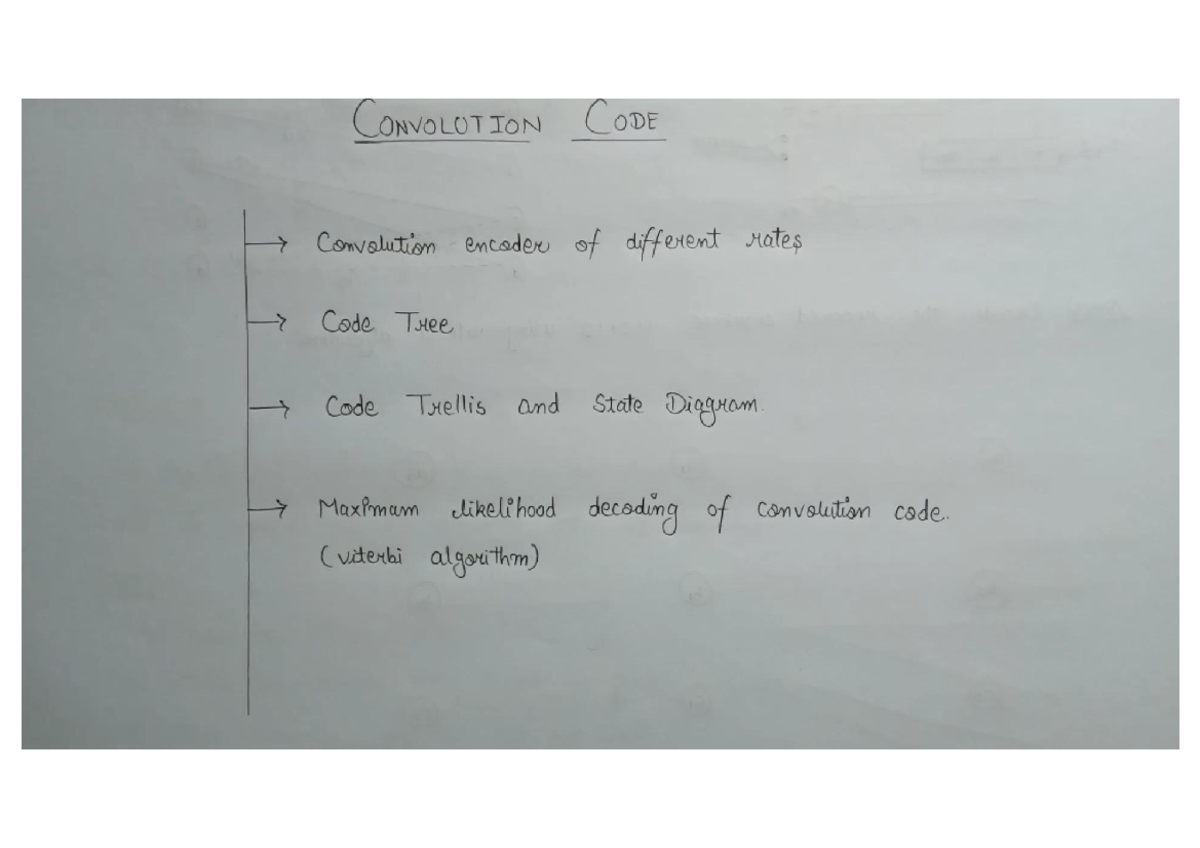 CONVOLUTION CODE
→ Convolution encoder of different rates
→ Code Tree
→ Code Trellis and State Diagram.
→ Maximam likelihood decoding of convolution code.
(viterbi algorithm)